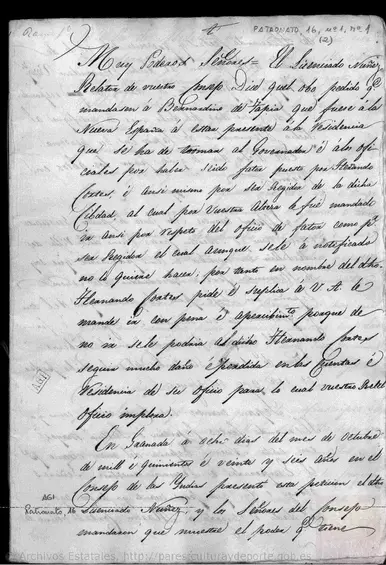 PATRONATO 16, nº1, nº1
(2)
Muy Poderosos Señores = El Licenciado Nuñez
Relator de vuestro Consejo Dice quel obo pedido q
mandasen a Bernardino de Tapia que fuese á la
Nueva España á estar presente á la Residencia
que se ha de tomar al Governador é a los ofi-
ciales por haber seido fator puesto por Hernando
Cortes, é ansi mismo por ser Regidor de la dicha
Cibdad, al cual por Vuestra Alteza le fué mandado
ir ansi por respeto del oficio de fator como pr
ser Regidor el cual aunque se le á notificado
no lo quiere hacer, por tanto en nombre del dho
Hernando Cortes, pide é suplica á V. A. le
mande ir con pena é apercibimto porque de
no ir se le podria al dicho Hernando Cortes
seguir mucho daño é perdida en las Cuentas é
Residencia de su oficio para lo cual vuestro Real
Oficio implora.
En Granada á ocho dias del mes de Octubre
de mill é quinientos é veinte y seis años en el
Consejo de las Yndias presento esta peticion el dho
Licenciado Nuñez, y los Señores del Consejo
mandaron que muestre el poder q tiene
AGI
Patronato, 16
© Archivos Estatales, http://pares.culturaydeporte.gob.es